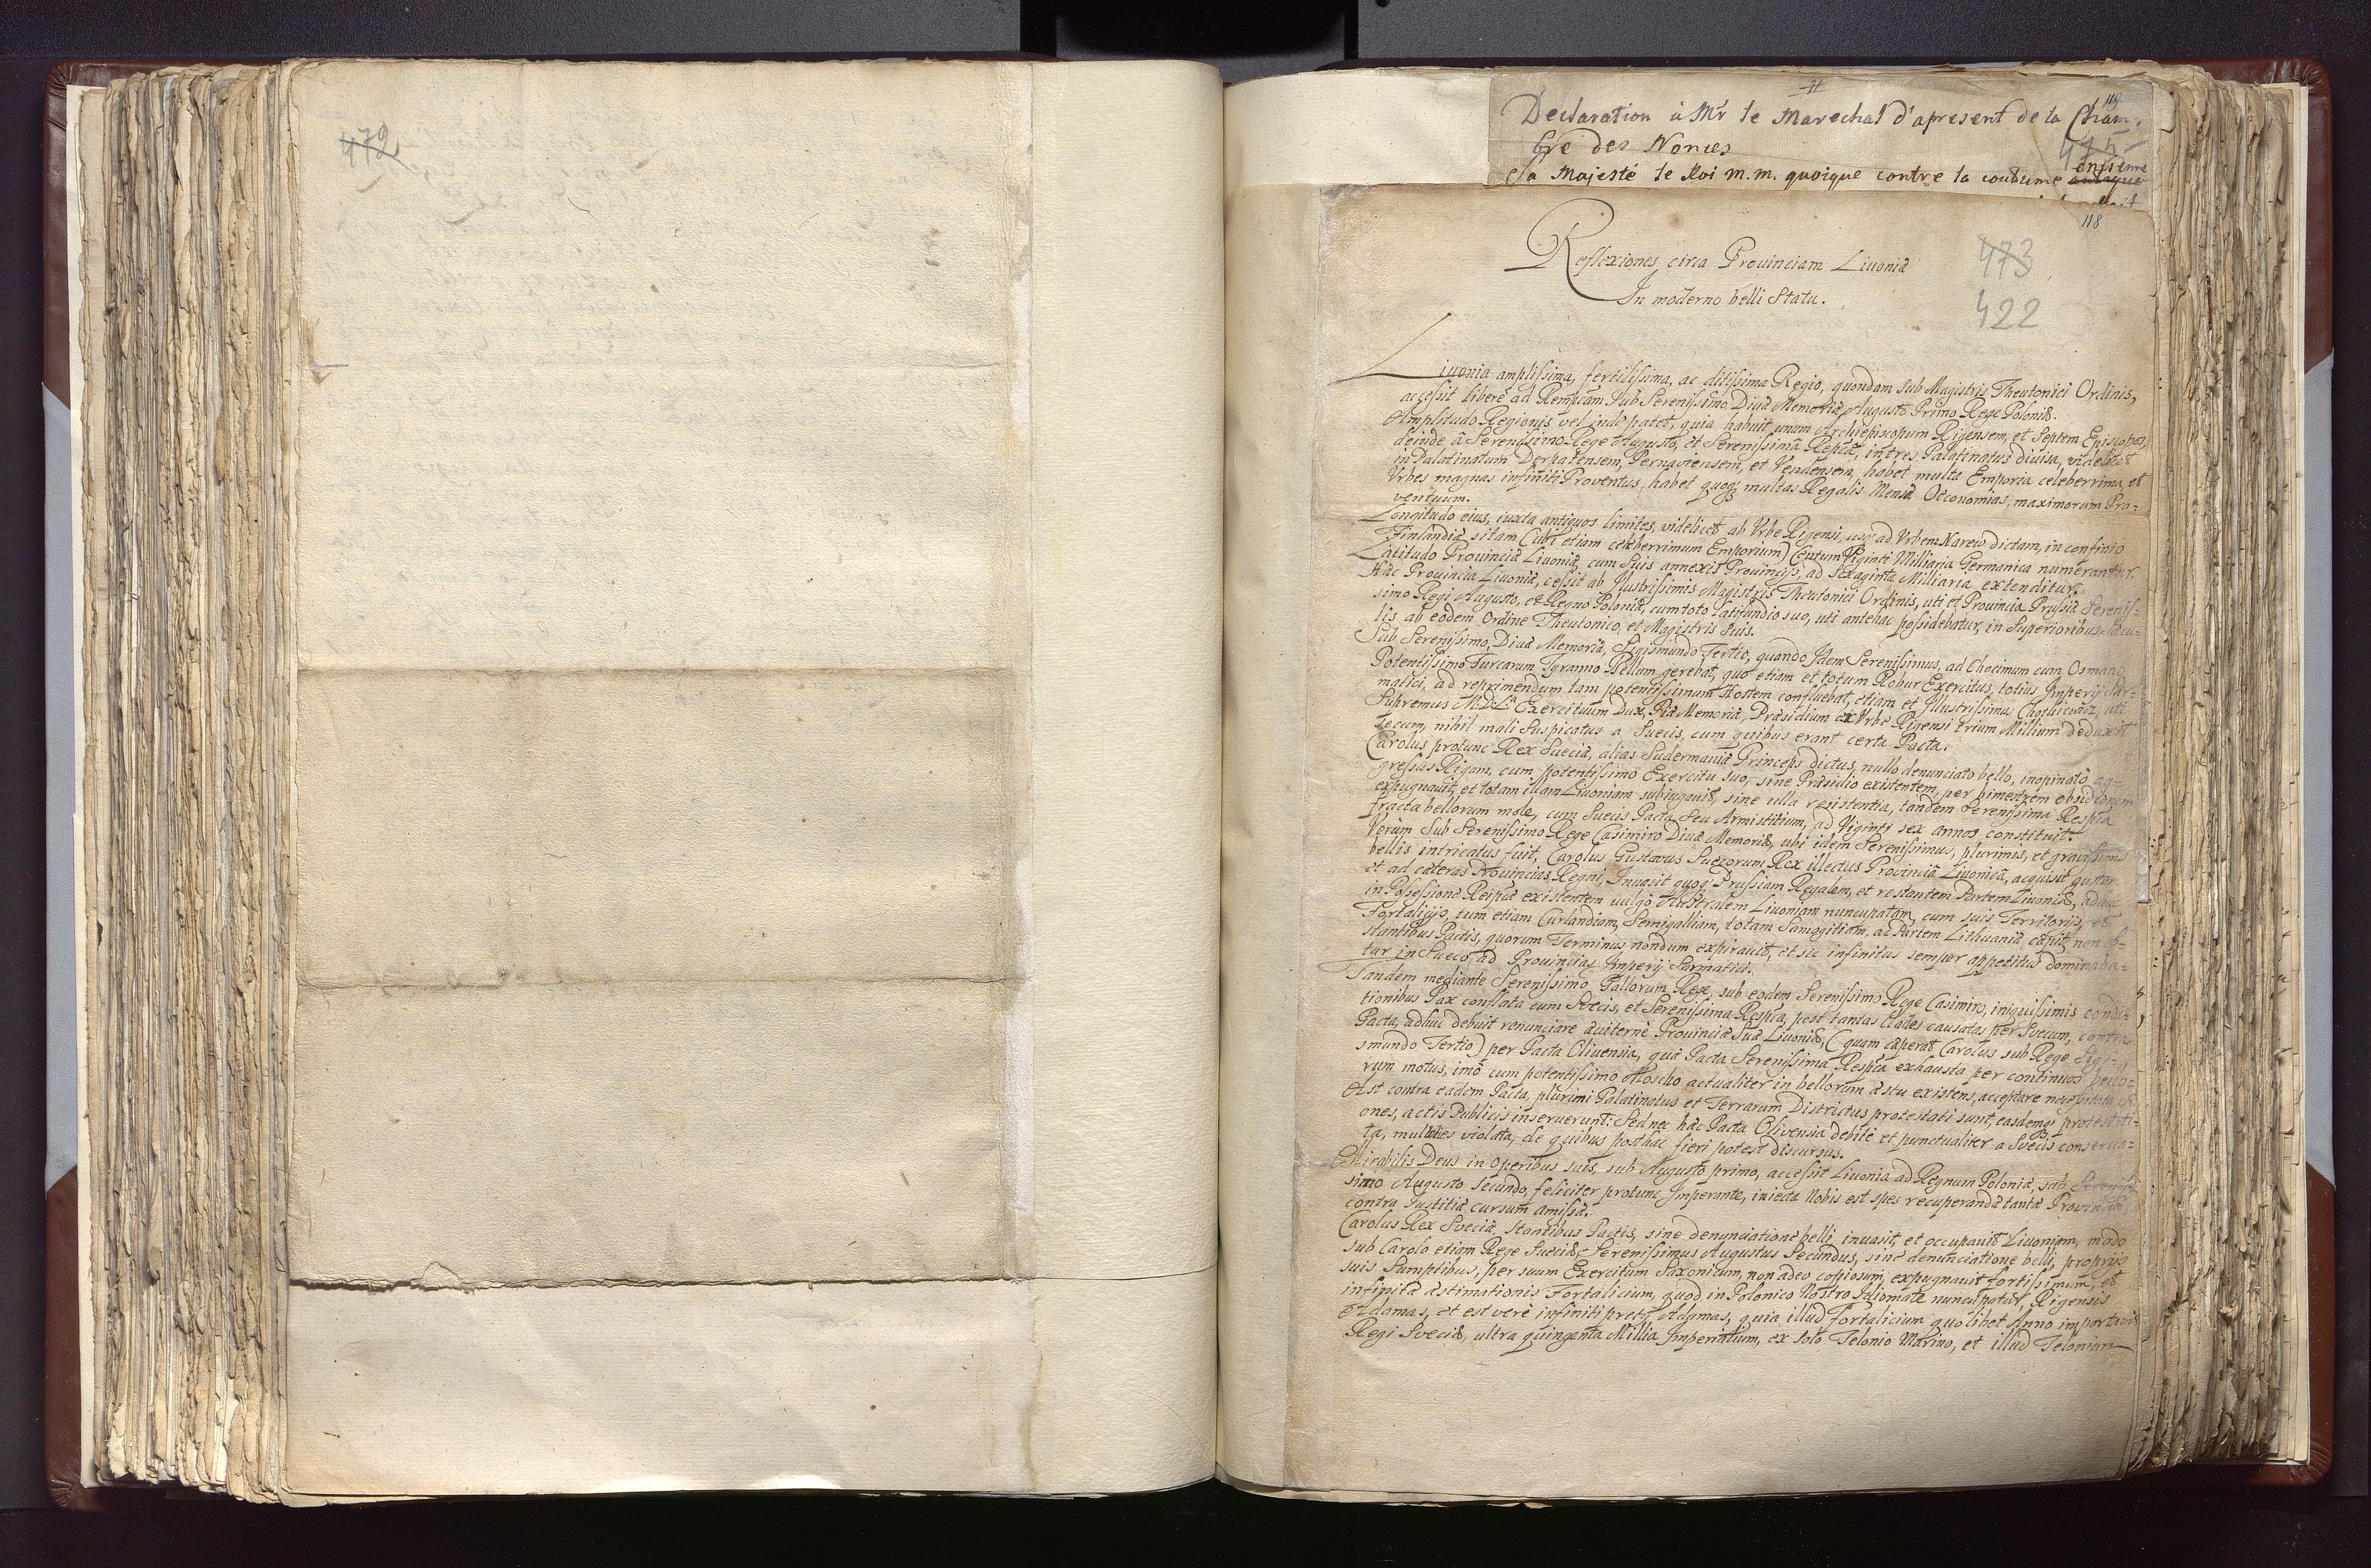 472
119
Declaration à Mr le Marechal d'apresent de la Cham-
bre des Nonces
Sa Majesté le Roi m.m. quoique contre la coutume
118
Reflexiones circa Prouinciam Liuoniæ
In moderno belli Statu.
473
422
Liuonia amplissima, fertilissima, ac ditissima Regio, quondam sub Magistris Theutonici Ordinis,
accessit liberè ad Rempcam sub Serenissimo Diuæ Memoriæ Augusto Primo Rege Poloniæ.
Amplitudo Regionis vel inde patet, quia habuit unum Archiepiscopum Rigensem, et septem Episcopos,
deinde à Serenissimo Rege Augusto, et Serenissimâ Repcâ, in tres Palatinatus diuisa, videlicet
in Palatinatum Derpatensem, Pernauiensem, et Vendensem, habet multa Emporia celeberrima, et
Vrbes magnas infiniti Proventus, habet quoq; multas Regalis Mensæ Oeconomias, maximorum Pro-
ventuum.
Longitudo eius, iuxta antiquos limites, videlicet ab Vrbe Rigensi, usq; ad Vrbem Narew dictam, in confinio
Finlandiæ sitam (ubi etiam celeberrimum Emporium) Centum Viginti Milliaria Germanica numerantur.
Latitudo Prouinciæ Liuoniæ, cum suis annexis Prouincijs, ad sexaginta Milliaria extenditur.
Hæc Prouincia Liuoniæ, cessit ab Illustrissimis Magistris Theutonici Ordinis, uti et Prouincia Prussiæ Serenis-
simo Regi Augusto, et Regno Poloniæ, cum toto latifundio suo, uti antehac possidebatur, in superioribus sæcu-
lis ab eodem Ordine Theutonico, et Magistris suis.
Sub Serenissimo, Diuæ Memoriæ, Sigismundo Tertio, quando Idem Serenissimus, ad Chocimum cum Osmano
Potentissimo Turcarum Tyranno Bellum gerebat, quo etiam et totum Robur Exercitus, totius Imperij Sar-
matici, ad reprimendum tam potentissimum Hostem confluebat, etiam et Illustrissimus Chotkiewicz, uti
Supremus M.D.L. Exercituum Dux, Piæ Memoriæ, Præsidium ex Vrbe Rigensi trium Millium deduxit
secum, nihil mali suspicatus a Suecis, cum quibus erant certa Pacta.
Carolus protunc Rex Sueciæ, alias Sudermaniæ Princeps dictus, nullo denunciato bello, inopinatò ag-
gressus Rigam, cum potentissimo Exercitu suo, sine Præsidio existentem, per bimestrem obsidionem
expugnauit, et totam illam Liuoniam subiugauit, sine ulla resistentia, tandem Serenissima Respca
fracta bellorum mole, cum Suecis Pacta seu Armistitium, ad Viginti sex annos constituit.
Verùm sub Serenissimo Rege Casimiro Diuæ Memoriæ, ubi idem Serenissimus, plurimis, et grauissimis
bellis intricatus fuit, Carolus Gustavus Suecorum Rex illectus Prouinciâ Liuonicâ, acquisit gustum
et ad cæteras Prouincias Regni, Inuasit quoq; Prussiam Regalem, et restantem Partem Liuoniæ, adhuc
in Possessione Reipcæ existentem vulgò Australem Liuoniam nuncupatam, cum suis Territorijs, et
Fortalicijs, tum etiam Curlandiam, Semigalliam, totam Samogitiam, ac Partem Lithuaniæ cæpit, non ob-
stantibus Pactis, quorum Terminus nondum expirauit, et sic infinitus semper appetitus dominaba-
tur in Sueco, ad Prouincias Imperij Sarmatici.
Tandem mediante Serenissimo Gallorum Rege, sub eodem Serenissimo Rege Casimiro, iniquissimis condi-
tionibus Pax conflata cum Suecis, et Serenissima Respca, post tantas Clades causatas per Suecum, contra
Pacta, adhuc debuit renunciare æuiternè Prouinciæ suæ Liuoniæ, (quam cæperat Carolus sub Rege Sigi-
smundo Tertio) per Pacta Oliuensia, quæ Pacta Serenissima Respca exhausta per continuos bello-
rum motus, imò cum potentissimo Moscho actualiter in bellorum æstu existens, acceptare necessitata est
Ast contra eadem Pacta, plurimi Palatinatus et Terrarum Districtus protestati sunt, easdemq; protestati-
ones, actis Publicis inseruerunt. Sed nec hæc Pacta Olivensia debitè et punctualiter a Suecis conserua-
ta, multoties violata, de quibus posthac fieri potest discursus.
Mirabilis Deus in Operibus suis, sub Augusto primo, accessit Liuonia ad Regnum Poloniæ, sub Serenis-
simo Augusto secundo, feliciter protunc Imperante, iniecta Nobis est spes recuperandæ tantæ Prouinciæ
contra Iustitiæ cursum amissæ.
Carolus Rex Sueciæ, stantibus Pactis, sine denunciatione belli, inuasit, et occupauit Liuoniam, modo
sub Carolo etiam Rege Sueciæ, Serenissimus Augustus Secundus, sine denunciatione belli, proprijs
suis Sumptibus, per suum Exercitum Saxonicum, non adeo copiosum, expugnauit fortissimum, et
infinitæ æstimationis Fortalicium, quod in Polonico Nostro Idiomate nuncupatur, Rigensis
Adamas, et est verè infiniti pretij Adamas, quia illud Fortalicium quolibet Anno importauit
Regi Sueciæ, ultra quingenta Millia Imperialium, ex solo Telonio Marino, et illud Telonium